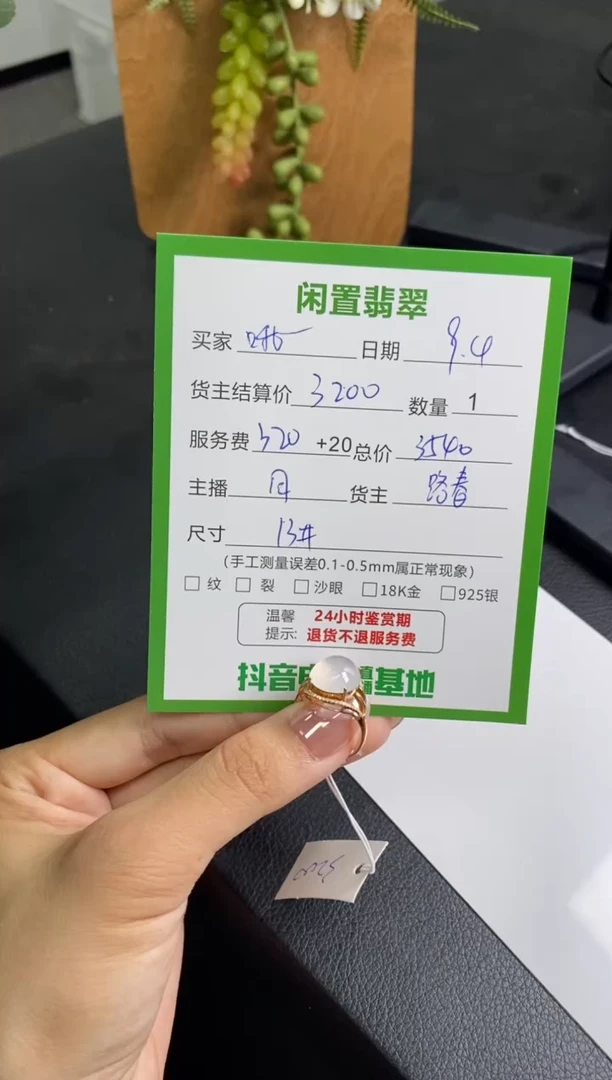 闲置翡翠
买家 日期 9.4
货主结算价 3200 数量 1
服务费 320 +20 总价 3540
主播 月 货主 路春
尺寸 13#
(手工测量误差0.1-0.5mm属正常现象)
□ 纹 □ 裂 □ 沙眼 □ 18K金 □ 925银
温馨 24小时鉴赏期
提示: 退货不退服务费
抖音 基地